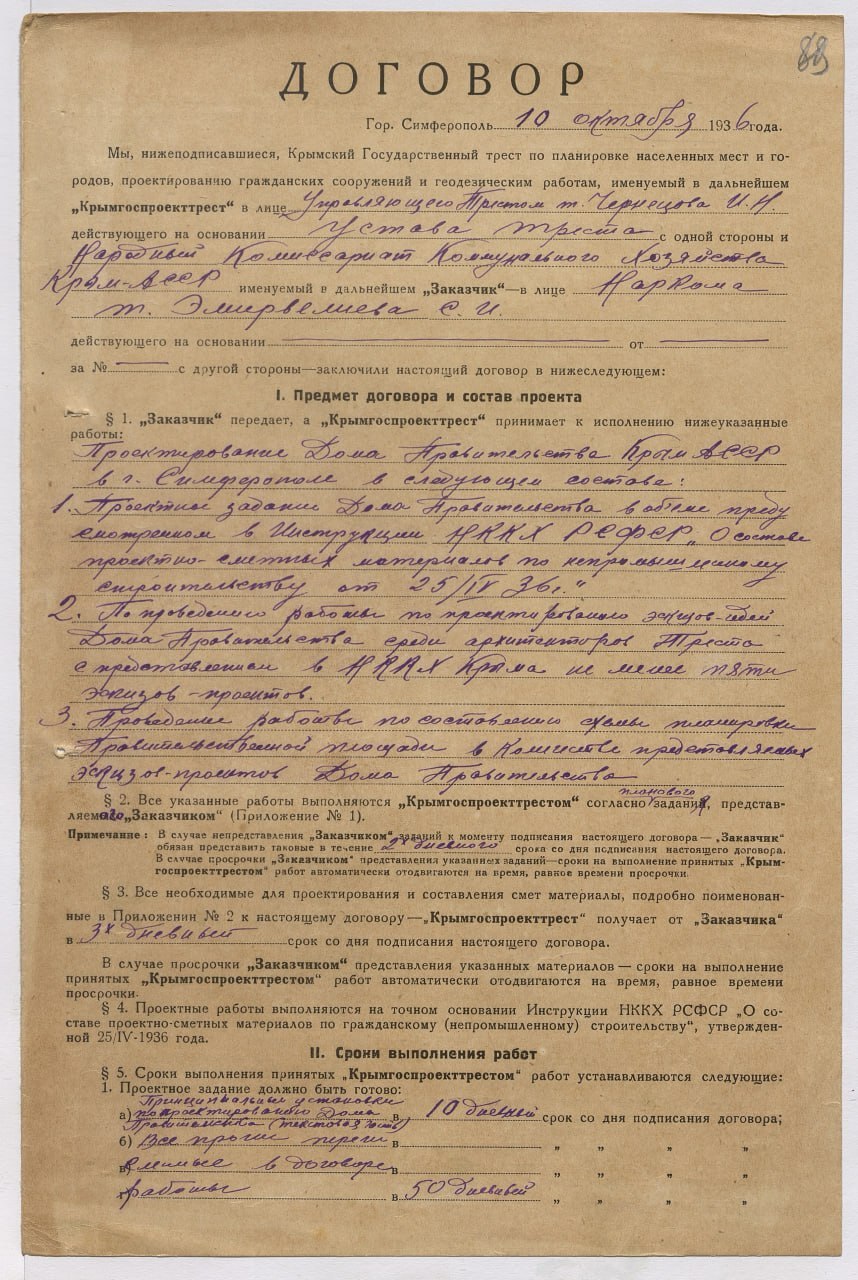 88
ДОГОВОР
Гор. Симферополь 10 октября 1936 года.
Мы, нижеподписавшиеся, Крымский Государственный трест по планировке населенных мест и го-
родов, проектированию гражданских сооружений и геодезическим работам, именуемый в дальнейшем
„Крымгоспроекттрест“ в лице Управляющего Трестом т. Чернецова И. Н.
действующего на основании Устава треста с одной стороны и
Народный Комиссариат Коммунального Хозяйства
Крым-АССР именуемый в дальнейшем „Заказчик“—в лице Наркома
т. Эмирвелиева С. И.
действующего на основании от
за № с другой стороны—заключили настоящий договор в нижеследующем:
I. Предмет договора и состав проекта
§ 1. „Заказчик“ передает, а „Крымгоспроекттрест“ принимает к исполнению нижеуказанные
работы:
Проектирование Дома Правительства Крым АССР
в г. Симферополе в следующем составе:
1. Проектное задание Дома Правительства в объеме преду
смотренном в Инструкции НККХ РСФСР „О составе
проектно-сметных материалов по непромышленному
строительству от 25/IV 36 г.“
2. По проведению работы по проектированию эскизов-идей
Дома Правительства среди архитекторов Треста
с представлением в НККХ Крыма не менее пяти
эскизов-проектов.
3. Проведение работы по составлению схемы планировки
Правительственной площади в количестве представляемых
эскизов-проектов Дома Правительства
§ 2. Все указанные работы выполняются „Крымгоспроекттрестом“ согласно планового задания, представ-
ляемого „Заказчиком“ (Приложение № 1).
Примечание: В случае непредставления „Заказчиком“ заданий к моменту подписания настоящего договора—„Заказчик“
обязан представить таковые в течение 2х дневного срока со дня подписания настоящего договора.
В случае просрочки „Заказчиком“ представления указанных заданий—сроки на выполнение принятых „Крым-
госпроекттрестом“ работ автоматически отодвигаются на время, равное времени просрочки.
§ 3. Все необходимые для проектирования и составления смет материалы, подробно поименован-
ные в Приложении № 2 к настоящему договору—„Крымгоспроекттрест“ получает от „Заказчика“
в 3х дневный срок со дня подписания настоящего договора.
В случае просрочки „Заказчиком“ представления указанных материалов—сроки на выполнение
принятых „Крымгоспроекттрестом“ работ автоматически отодвигаются на время, равное времени
просрочки.
§ 4. Проектные работы выполняются на точном основании Инструкции НККХ РСФСР „О со-
ставе проектно-сметных материалов по гражданскому (непромышленному) строительству“, утвержден-
ной 25/IV-1936 года.
II. Сроки выполнения работ
§ 5. Сроки выполнения принятых „Крымгоспроекттрестом“ работ устанавливаются следующие:
1. Проектное задание должно быть готово:
Принципиальные установки
а) по проектированию Дома в 10 дневный срок со дня подписания договора;
Правительства (текстовая часть)
б) Все прочие переги в „ „ „ „
в) сленные в договоре в „ „ „ „
работы в 50 дневный „ „ „ „